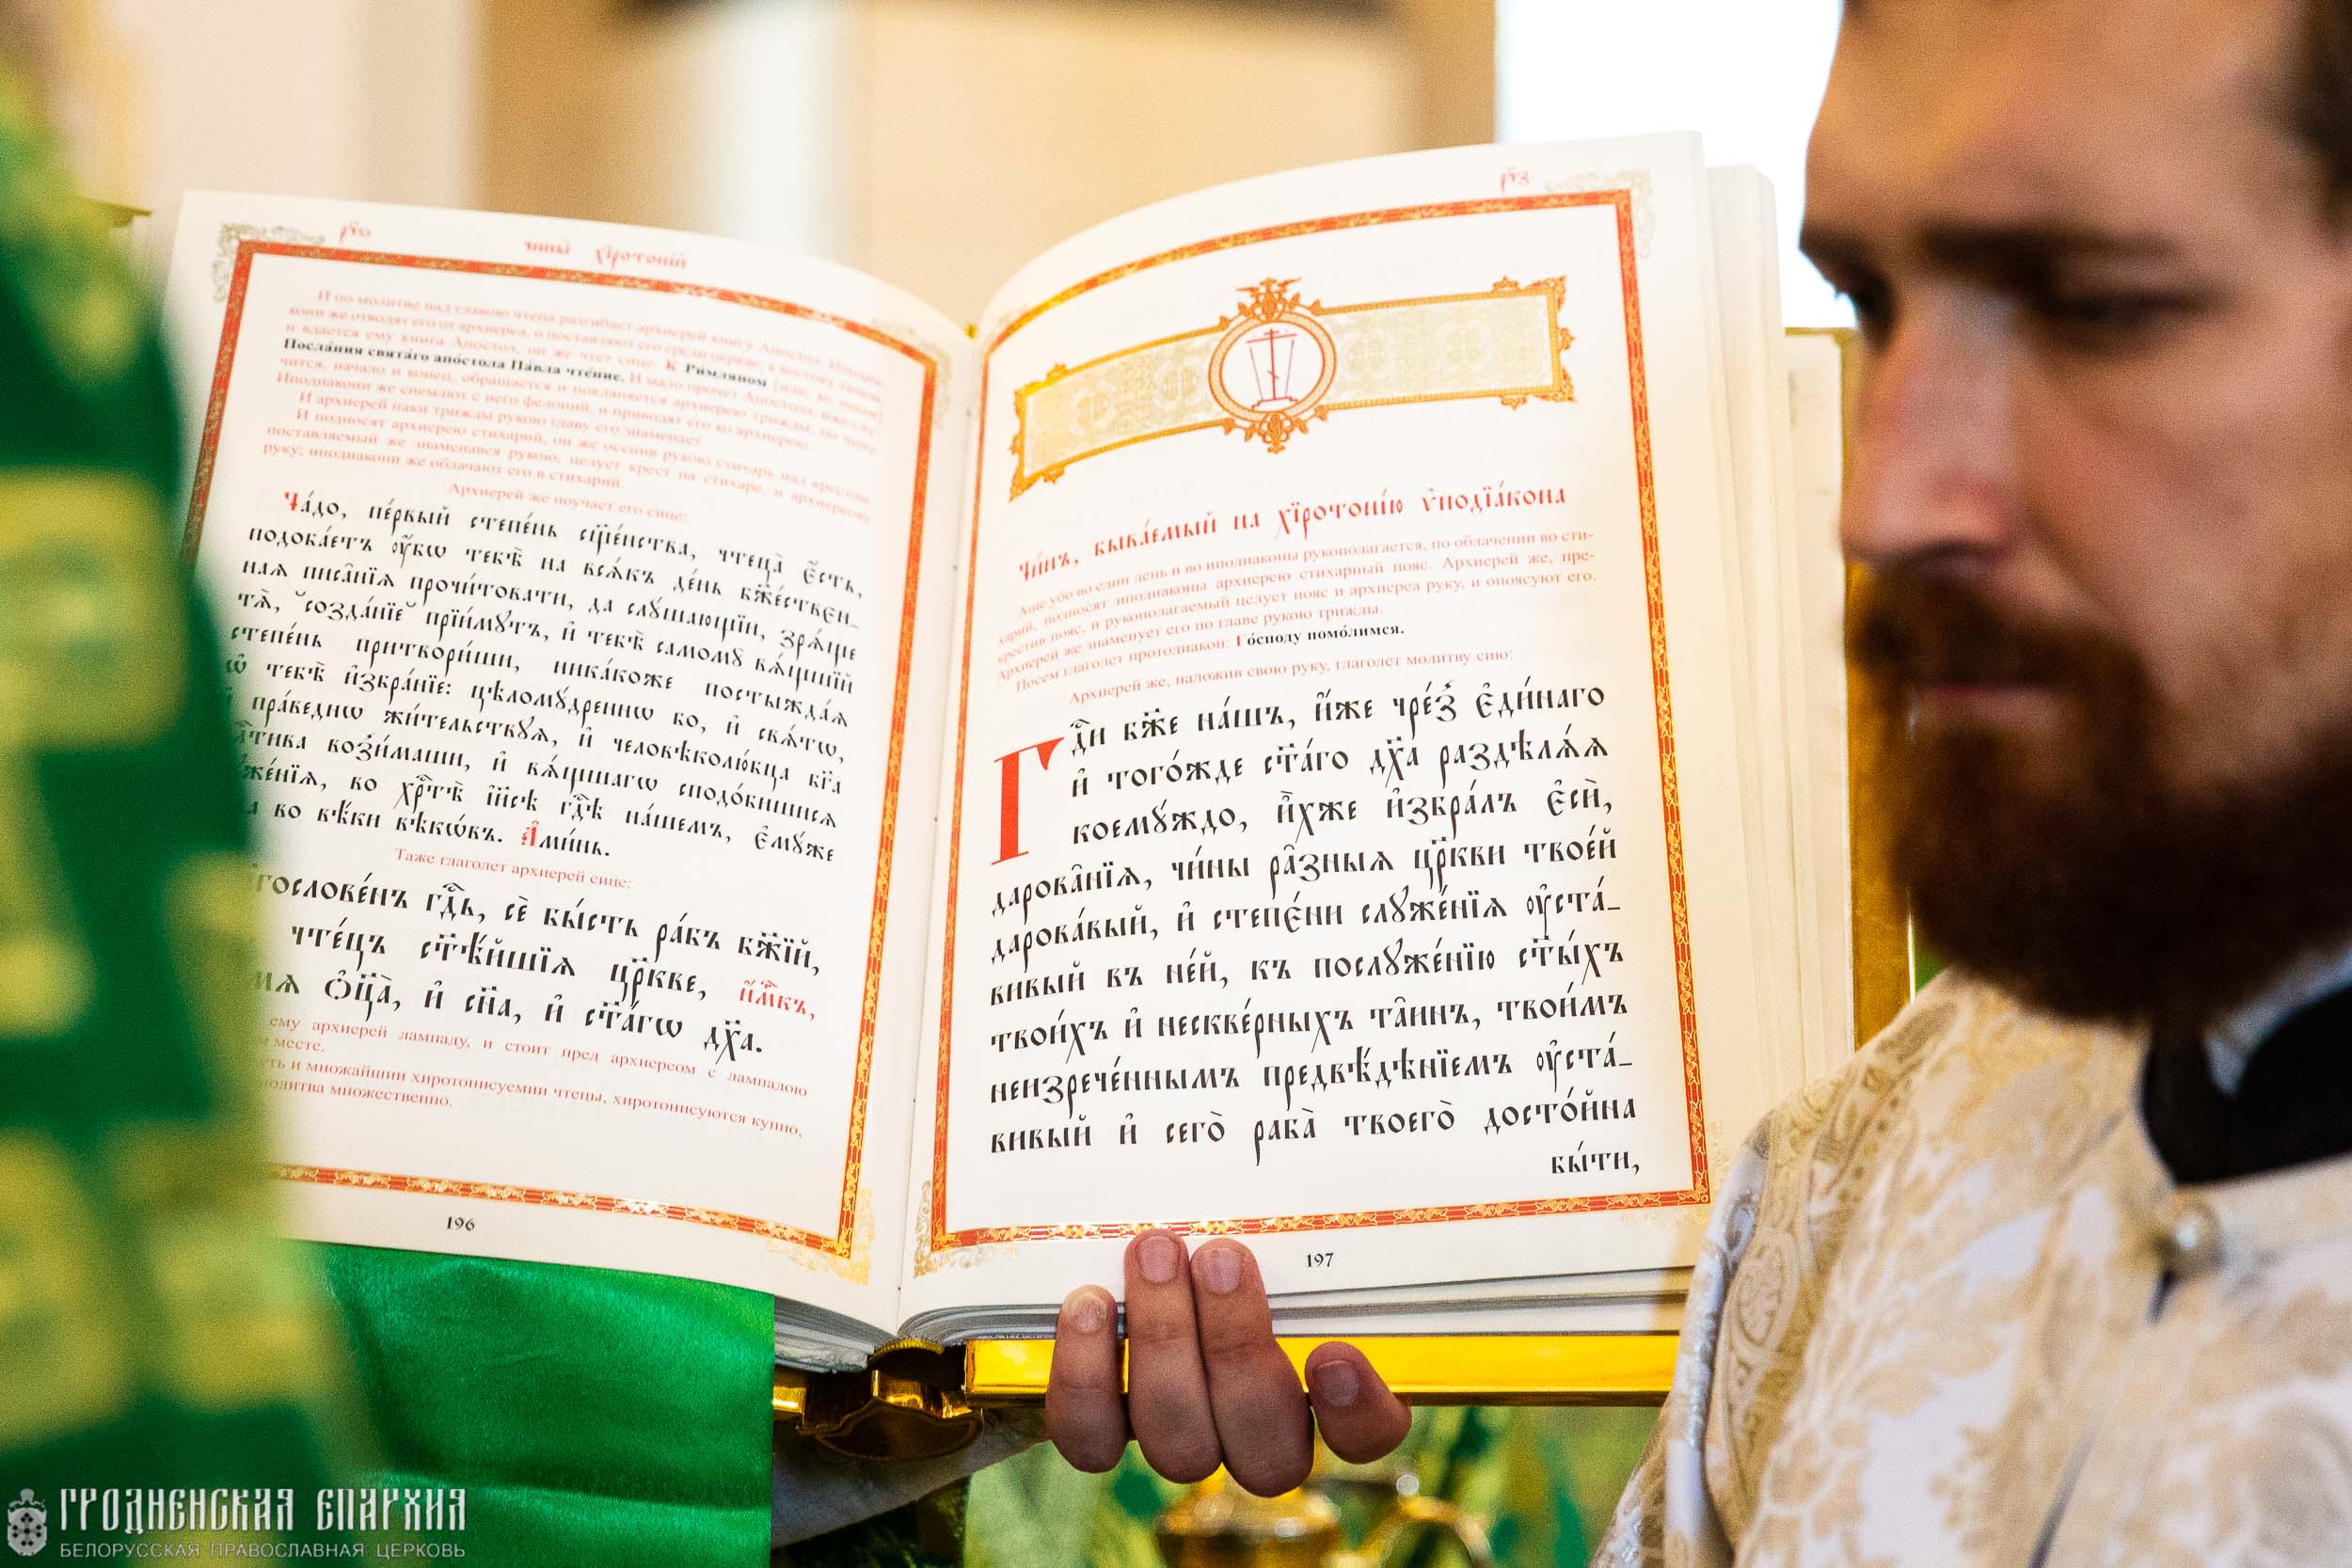 рч҃ѕ
чины̀ хїротоні́й
И по молитве над главою чтеца разгибает архиерей книгу Апостол. Иподиа-
кони же отводят его от архиереа, и поставляют его среди церкве, к востоку лицем,
и вдается ему книга Апостол, он же чтет сице: К Ри́мляном [или, ко иным]
Посла́ния свята́го апо́стола Па́вла чте́ние. И мало прочет Апостола, иже слу-
чится, начало и конец, обращается и покланяется архиерею трижды, по чину.
Иподиакони же снемлют с него фелоний, и приводят его ко архиерею.
И архиерей паки трижды рукою главу его знаменает.
И подносят архиерею стихарий, он же осенив рукою стихарь над крестом,
поставляемый же знаменався рукою, целует крест на стихаре, и архиерееву
руку; иподиакони же облачают его в стихарий.
Архиерей же поучает его сице:
Ча́до, пе́рвый степе́нь сщ҃е́нства, чтеца̀ є҆́сть,
подоба́етъ ᲂу҆́бѡ тебѣ̀ на всѧ́къ де́нь бж҃е́ствен-
наѧ писа̑нїѧ прочи́товати, да слꙋ́шающїи, зрѧ́ще
тѧ̀, созда́нїе прїи́мꙋтъ, и҆ тебѣ̀ самомꙋ̀ вѧ́щшїй
степе́нь притвори́ши, ника́коже постыжда́ѧ
ѡ тебѣ̀ и҆збра́нїе: цѣломꙋ́дреннѡ бо, и҆ свѧ́тѡ,
пра́веднѡ жи́тельствꙋѧ, и҆ человѣколю́бца бг҃а
воз̾и́маши, и҆ вѧ́щшагѡ сподо́бишисѧ
же́нїѧ, ѡ хрⷭ҇тѣ̀ і҆и҃сѣ гдⷭ҇ѣ на́шемъ, є҆мꙋ́же
во вѣ́ки вѣкѡ́въ. А҆ми́нь.
Таже глаголет архиерей сице:
гослове́нъ гдⷭ҇ь, сѐ бы́сть ра́бъ бж҃їй,
чте́цъ ст҃ѣ́йшїѧ цр҃кве, и҆́мкъ,
мѧ ѻ҆ц҃а̀, и҆ сн҃а, и҆ ст҃а́гѡ дх҃а.
ему архиерей лампаду, и стоит пред архиереом с лампадою
месте.
и множайшии хиротонисуемии чтецы, хиротонисуются купно,
молитва множественно.
196
рч҃з
Чи́нъ, быва́емый на хїротоні́ю ѵ҆подїа́кона
Аще убо во един день и во иподиаконы рукополагается, по облачении во сти-
харий, подносят иподиаконы архиерею стихарный пояс. Архиерей же, пре-
крестив пояс, и рукополагаемый целует пояс и архиереа руку, и опоясуют его.
Архиерей же знаменует его по главе рукою трижды.
Посем глаголет протодиакон: Го́споду помо́лимся.
Архиерей же, наложив свою руку, глаголет молитву сию:
Гдⷭ҇и бж҃е на́шъ, и҆́же чре́з̾ є҆ди́наго
и҆ того́жде ст҃а́го дх҃а раздѣлѧ́ѧ
коемꙋ́ждо, и҆̀хже и҆збра́лъ є҆сѝ,
дарова̑нїѧ, чи́ны ра̑зныѧ цр҃кви твое́й
дарова́вый, и҆ степє́ни слꙋже́нїѧ ᲂу҆ста́-
вивый въ не́й, къ послꙋже́нїю ст҃ы́хъ
твои́хъ и҆ нескве́рныхъ та̑инъ, твои́мъ
неизрече́ннымъ предвѣ́дѣнїемъ ᲂу҆ста́-
вивый и҆ сего̀ раба̀ твоего̀ досто́йна
бы́ти,
197
ГРОДНЕНСКАЯ ЕПАРХИЯ
БЕЛОРУССКАЯ ПРАВОСЛАВНАЯ ЦЕРКОВЬ